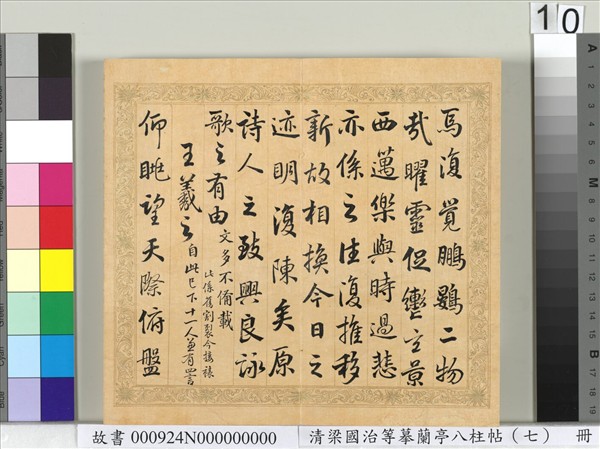 焉復覺鵬鷃二物
哉曜靈促轡玄景
西邁樂與時過悲
亦係之往復推移
新故相換今日之
迹明復陳矣原
詩人之致興良詠
歌之有由 文多不備載
此係舊割裂今接裱
王羲之 自此已下十一人並有四言
仰眺望天際俯盤
故書 000924N000000000
清梁國治等摹蘭亭八柱帖（七） 冊
10
A
M
B